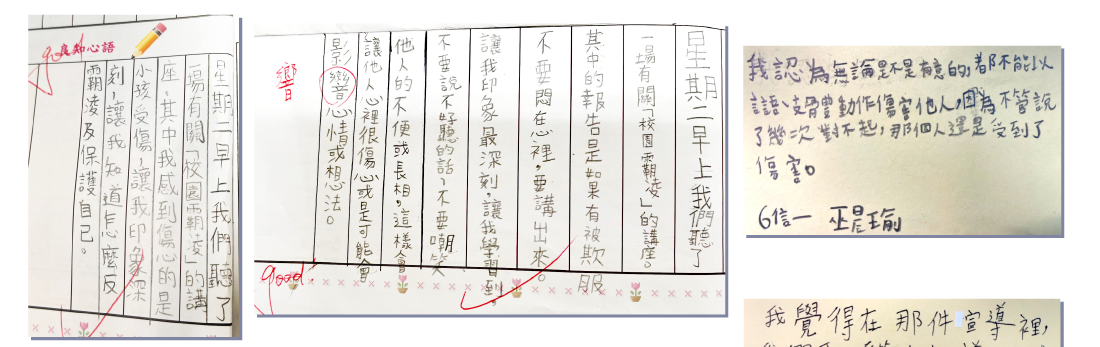 good
良知心語
星期二早上我們聽了
一場有關「校園霸凌」的講
座,其中我感到傷心的是
小孩受傷,讓我印象深
刻,讓我知道怎麼反
霸凌及保護自己。
星期二早上我們聽了
一場有關「校園霸凌」的講座。
其中的報告是如果有被欺服
不要悶在心裡,要講出來。
讓我印象最深刻,讓我學習到,
不要說不好聽的話,不要嘲笑
他人的不便或長相,這樣會
讓他人心裡很傷心或是可能會
影響心情或想法。
響
good!
我認為無論是不是有意的,都不能以
言語、支體動作傷害他人,因為不管說
了幾次對不起,那個人還是受到了
傷害。
6信一 巫昰瑜
我覺得在那件宣導裡,